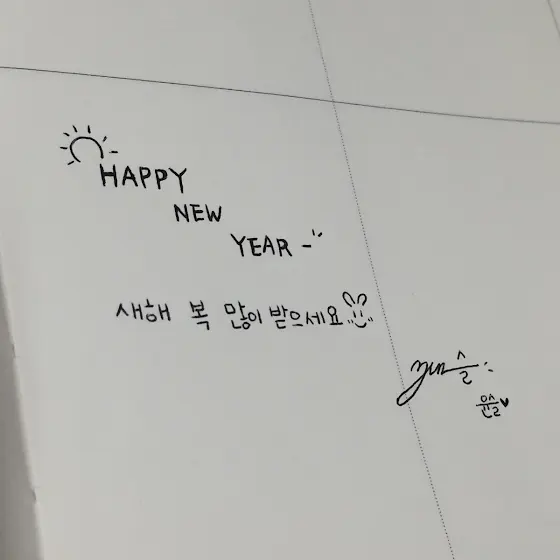 HAPPY
NEW
YEAR
새해 복 많이 받으세요